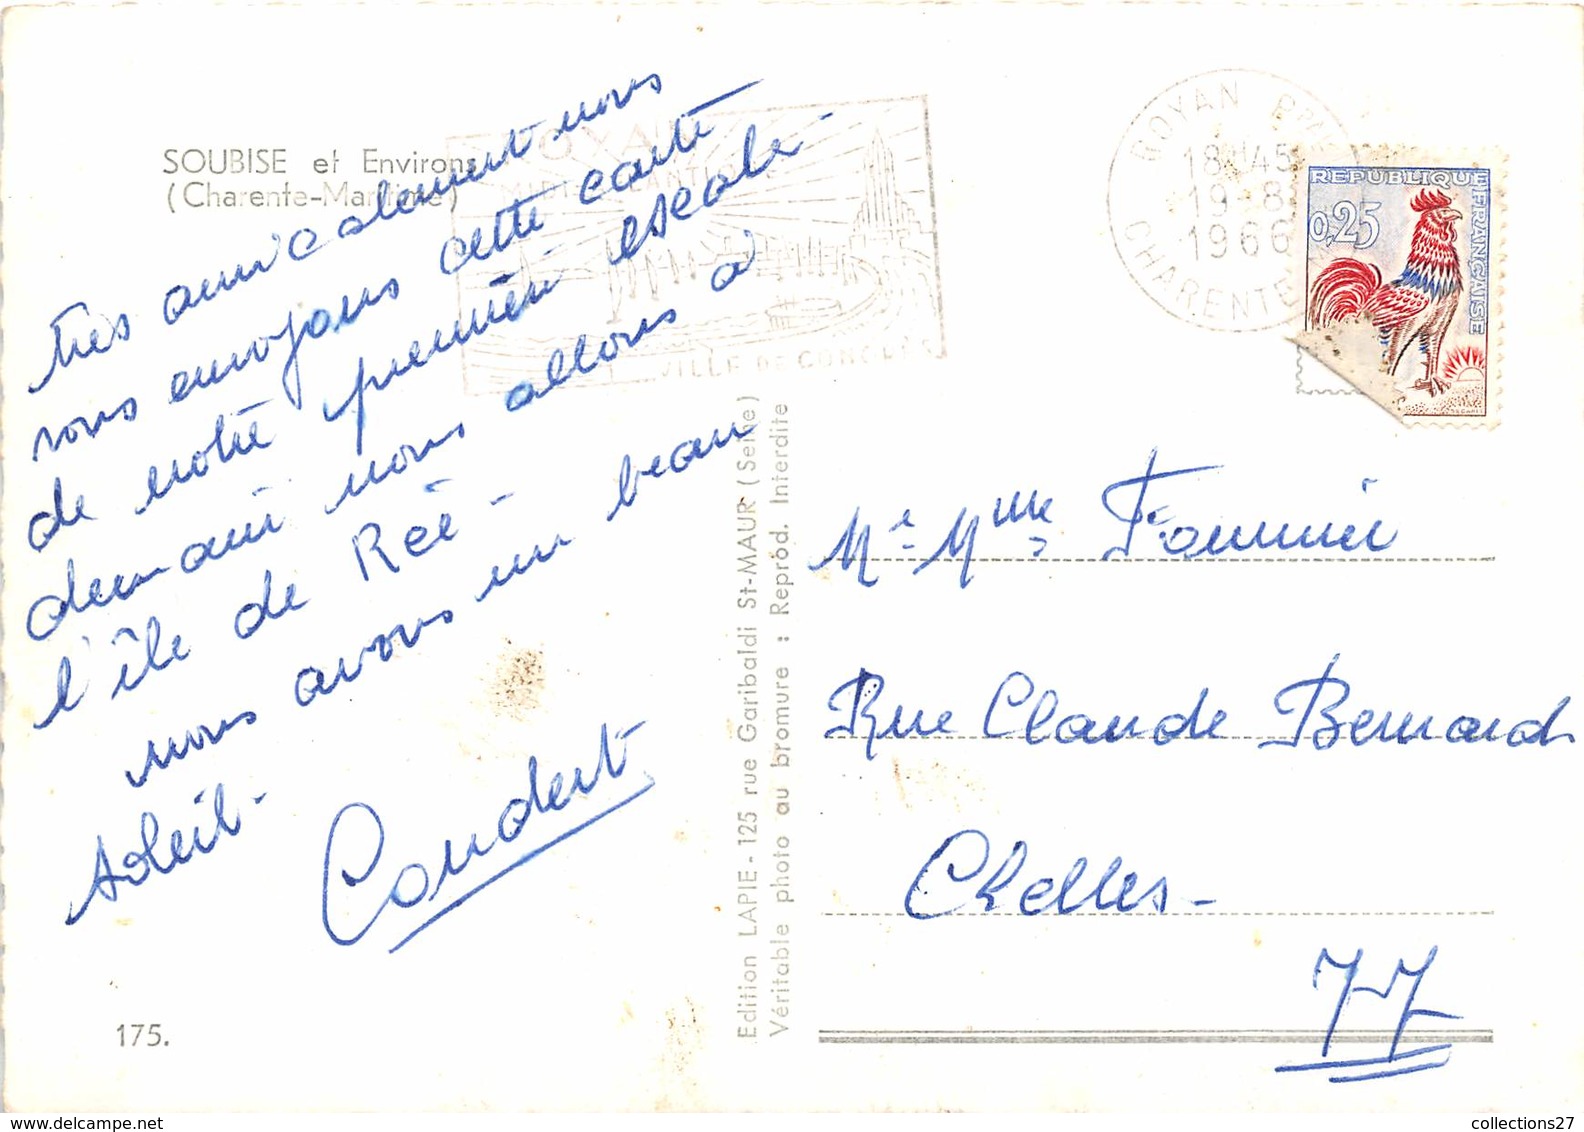 SOUBISE et Environs
(Charente-Maritime)
très amicalement nous
vous envoyons cette carte
de notre première escale -
demain nous allons à
l'île de Rée -
nous avons un beau
soleil -
Coudert
175.
Edition LAPIE - 125 rue Garibaldi St-MAUR (Seine)
Véritable photo au bromure : Reprod. Interdite
ROYAN
VILLE DE CONGRÈS
ROYAN Ppal
18H45
19-8
1966
CHARENTE-
REPUBLIQUE FRANÇAISE
0,25
Mr Mme Fournier
Rue Claude Bernard
Chelles -
77
collections27